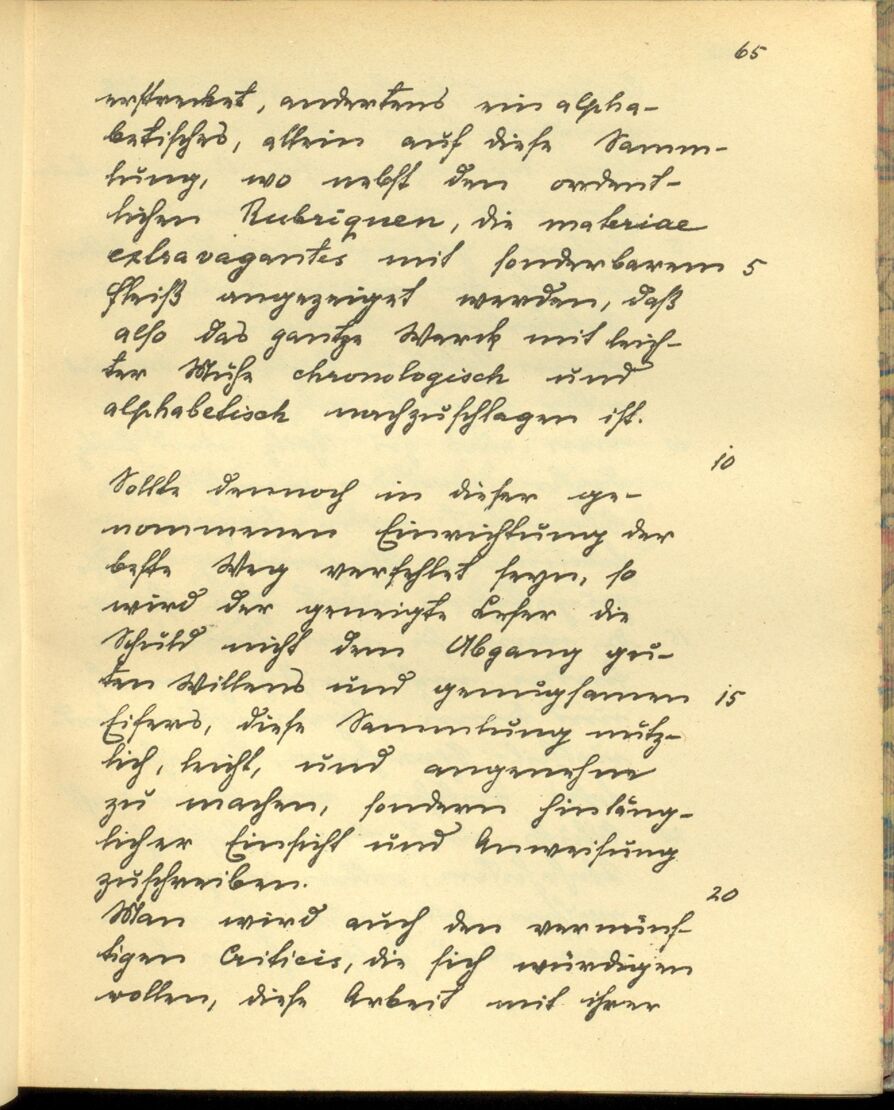 65
erstrecket, andertens ein alpha-
betisches, allein auf diese Samm-
lung, wo nebst den ordent-
lichen Rubriquen, die materiae
extravagantes mit sonderbarem 5
Fleiß angezeiget werden, daß
also das gantze Werck mit leich-
ter Mühe chronologisch und
alphabetisch nachzuschlagen ist.
10
Sollte dennoch in dieser ge-
nommenen Einrichtung der
beste Weg verfehlet seyn, so
wird der geneigte Leser die
Schuld nicht dem Abgang gu-
ten Willens und genugsamen 15
Eifers, diese Sammlung nütz-
lich, leicht, und angenehme
zu machen, sondern hinläng-
licher Einsicht und Anweisung
zuschreiben.
20
Man wird auch den vernünf-
tigen Criticis, die sich würdigen
wollen, diese Arbeit mit ihrer